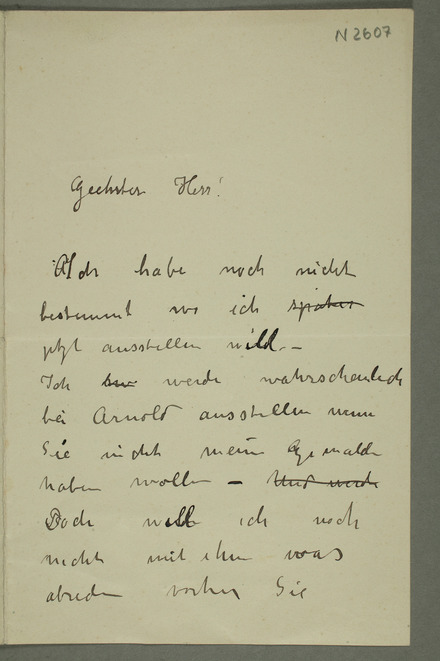 N 2607
Geehrter Herr!
Ich habe noch nicht
bestemmt wo ich später
jetzt ausstellen will –
Ich werde wahrscheinlich
bei Arnold ausstellen wenn
Sie nicht meine Gemälde
haben wollen – Und werde
Doch will ich noch
nicht mit ihm was
abreden vorher Sie